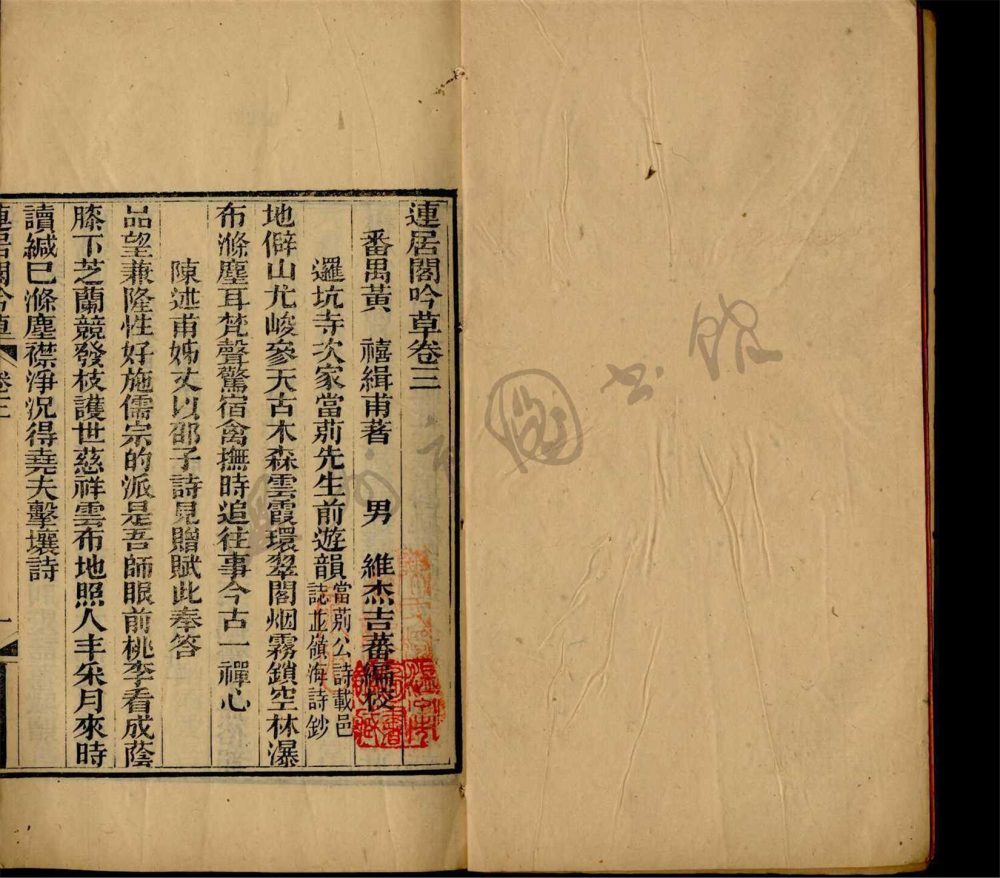 連居閣吟草卷三
番禺黃 禧緝甫著 男 維杰吉蕃編校
邏坑寺次家當荊先生前遊韻
當荊公詩載邑
誌並嶺海詩鈔
地僻山尤峻參天古木森雲霞環翠閣烟霧鎖空林瀑
布滌塵耳梵聲驚宿禽撫時追往事今古一禪心
陳述甫姊丈以邵子詩見贈賦此奉答
品望兼隆性好施儒宗的派是吾師眼前桃李看成蔭
膝下芝蘭競發枝護世慈祥雲布地照人丰采月來時
讀緘已滌塵襟淨況得堯夫擊壤詩
連居閣吟草 卷三 一